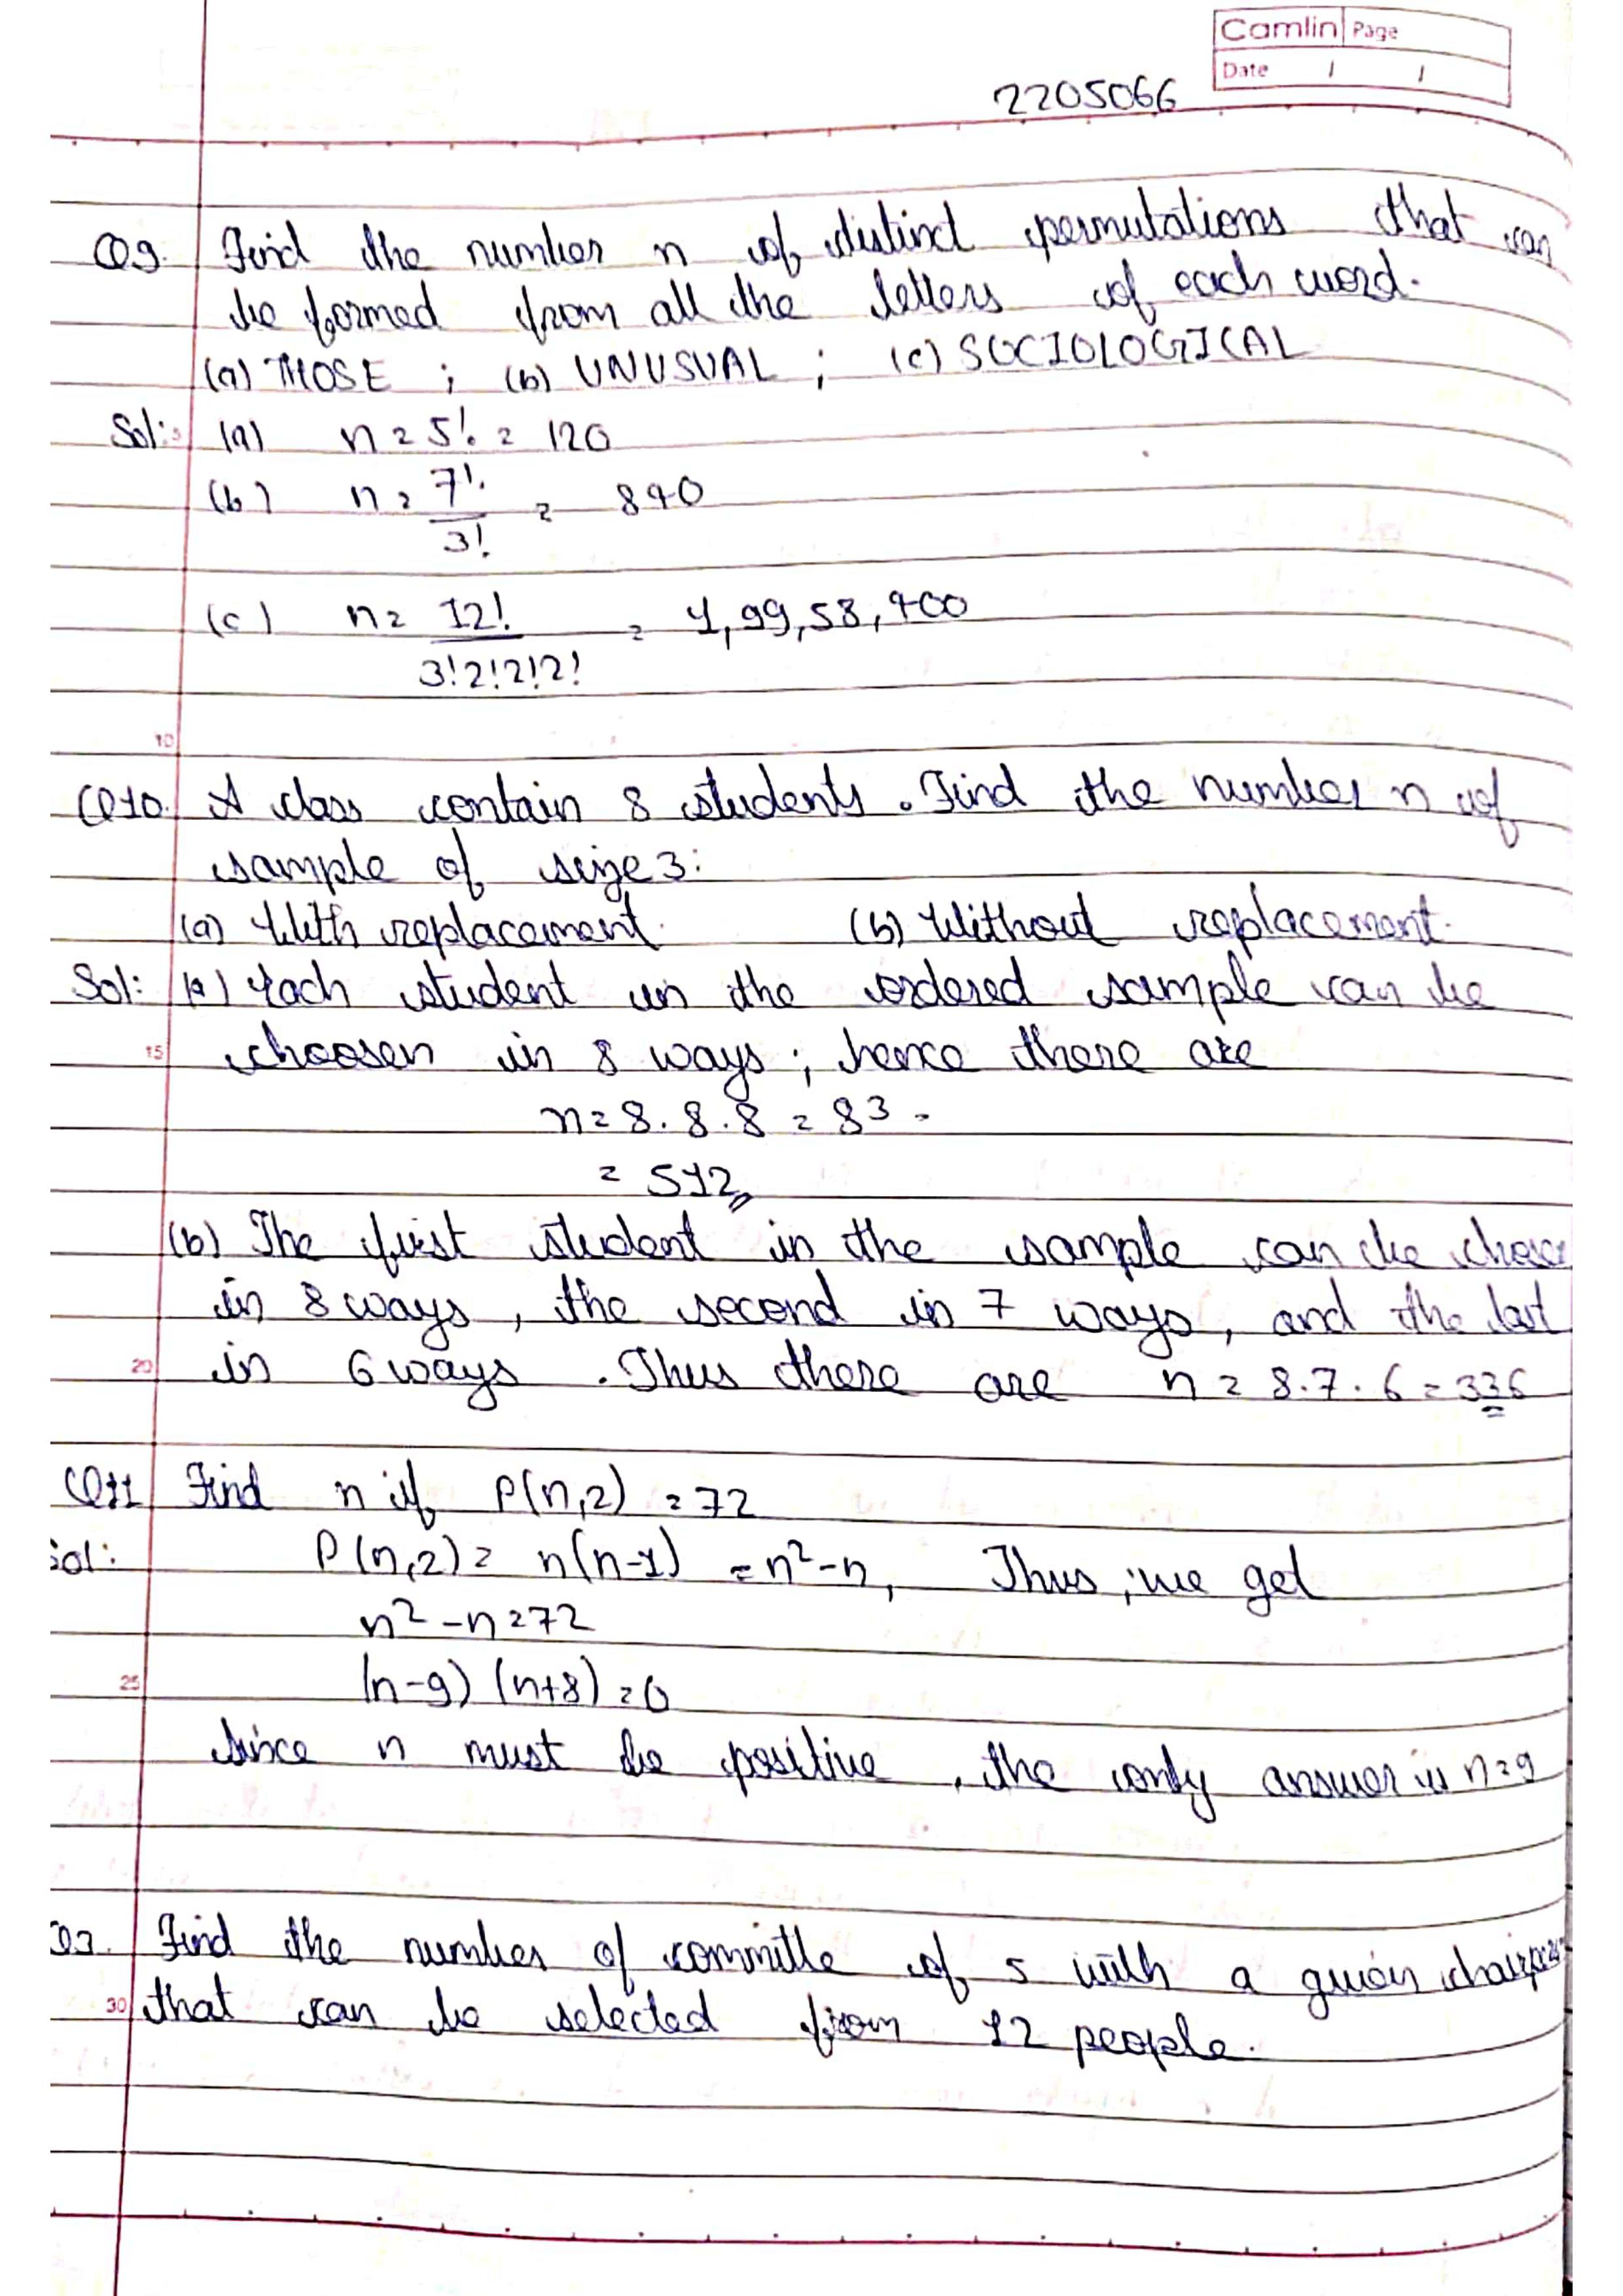 Camlin Page
Date / /
2205066
Q9. Find the number n of distinct permutations that can
be formed from all the letters of each word.
(a) THOSE ; (b) UNUSUAL ; (c) SOCIOLOGICAL
Sol: (a) n = 5! = 120
(b) n = 7!/3! = 840
(c) n = 12!/3!2!2!2! = 1,99,58,400
10
Q10. A class contain 8 students. Find the number n of
sample of size 3:
(a) With replacement. (b) Without replacement.
Sol: (a) Each student in the ordered sample can be
15 choosen in 8 ways ; hence there are
n = 8.8.8 = 83
= 512
(b) The first student in the sample can be
in 8 ways, the second in 7 ways, and the last
20 in 6 ways . Thus there are n = 8.7.6 = 336
Q11 Find n if P(n,2) = 72
Sol: P(n,2) = n(n-1) = n²-n, Thus, we get
n² - n = 72
25 (n-9) (n+8) = 0
Since n must be positive, the only answer is n=9
Find the number of committe of 5 with a given
30 that can be selected from 12 people.